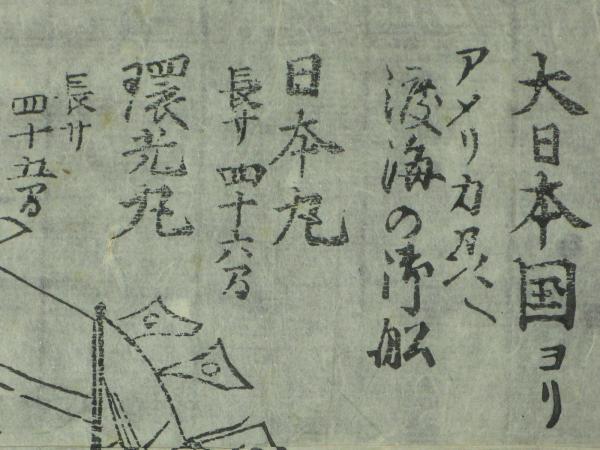 大日本国ヨリ
アメリカ迄ヘ
渡海の御船
日本丸
長サ四十六間
環光丸
長サ
四十五間